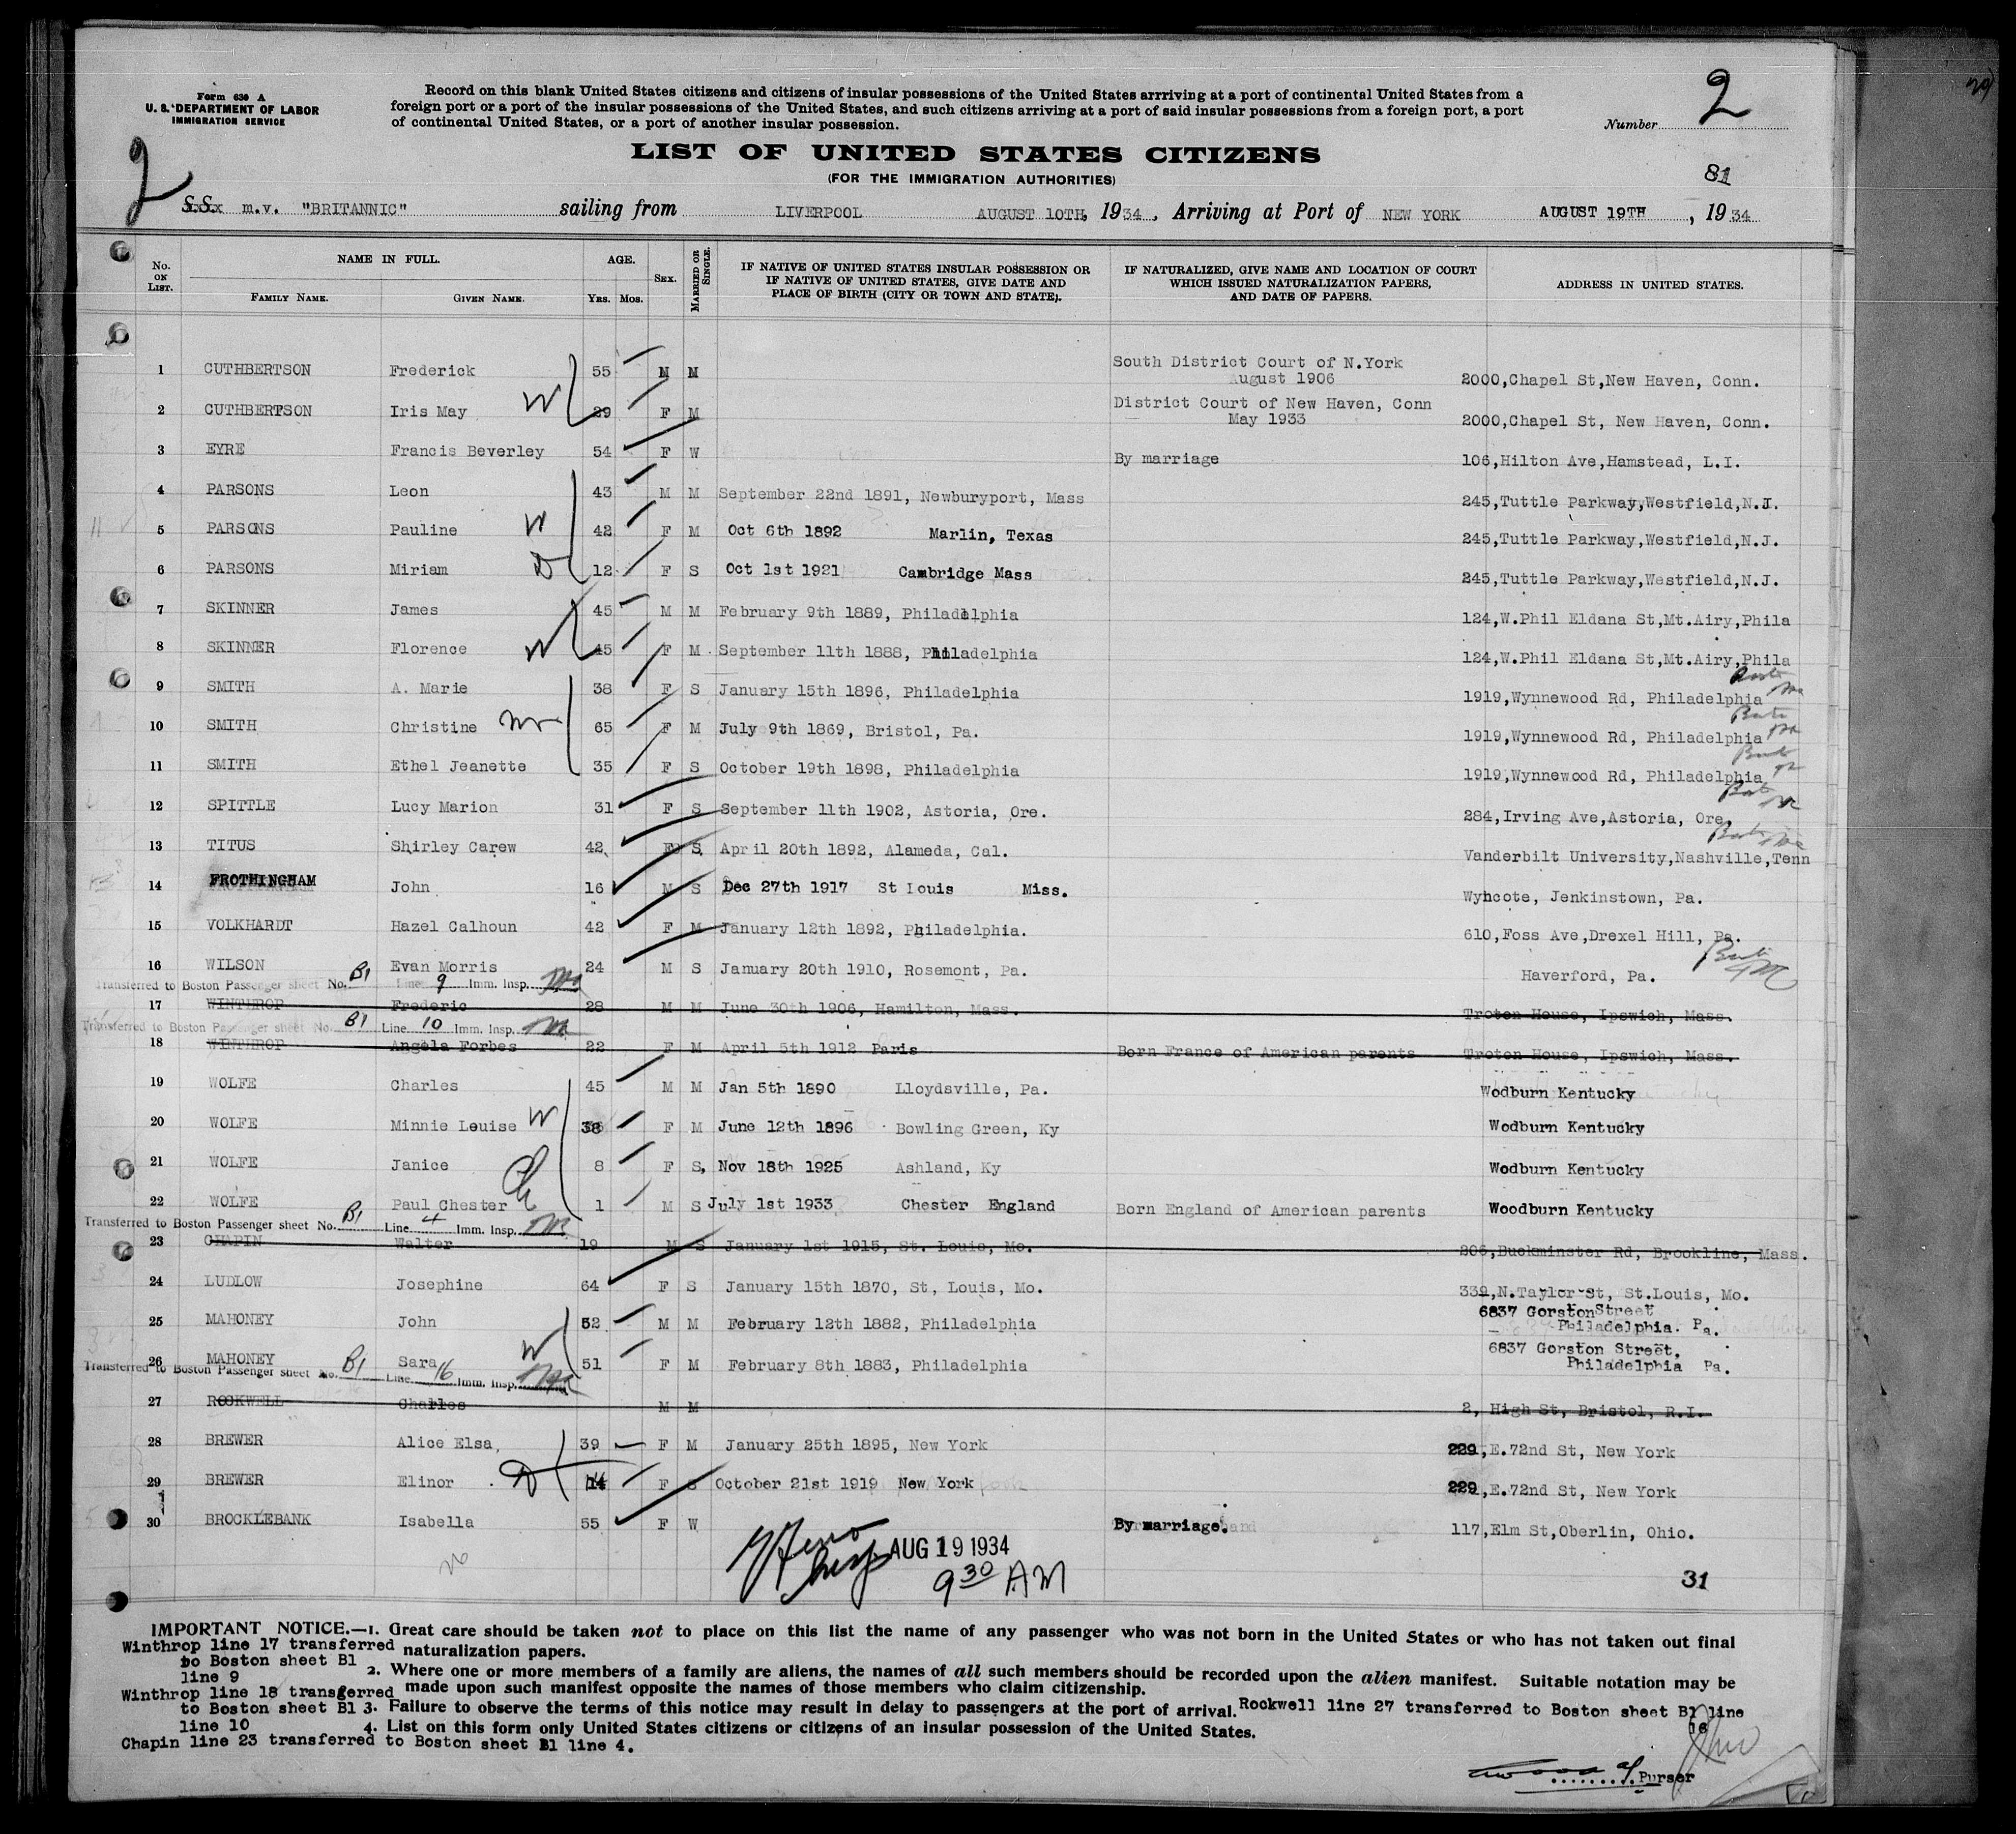 Form 630 A
U. S. DEPARTMENT OF LABOR
IMMIGRATION SERVICE
Record on this blank United States citizens and citizens of insular possessions of the United States arrriving at a port of continental United States from a
foreign port or a port of the insular possessions of the United States, and such citizens arriving at a port of said insular possessions from a foreign port, a port
of continental United States, or a port of another insular possession.
Number 2
LIST OF UNITED STATES CITIZENS
(FOR THE IMMIGRATION AUTHORITIES)
81
2
S.S. m.v. "BRITANNIC" sailing from LIVERPOOL AUGUST 10TH, 1934, Arriving at Port of NEW YORK AUGUST 19TH, 1934
No. ON LIST. NAME IN FULL. FAMILY NAME. GIVEN NAME. AGE. YRS. MOS. SEX. MARRIED OR SINGLE. IF NATIVE OF UNITED STATES INSULAR POSSESSION OR IF NATIVE OF UNITED STATES, GIVE DATE AND PLACE OF BIRTH (CITY OR TOWN AND STATE). IF NATURALIZED, GIVE NAME AND LOCATION OF COURT WHICH ISSUED NATURALIZATION PAPERS, AND DATE OF PAPERS. ADDRESS IN UNITED STATES.
1 CUTHBERTSON Frederick 55 M M South District Court of N.York August 1906 2000,Chapel St,New Haven, Conn.
2 CUTHBERTSON Iris May W 29 F M District Court of New Haven, Conn May 1933 2000,Chapel St, New Haven, Conn.
3 EYRE Francis Beverley 54 F W By marriage 106,Hilton Ave,Hamstead, L.I.
4 PARSONS Leon 43 M M September 22nd 1891, Newburyport, Mass 245,Tuttle Parkway,Westfield,N.J.
5 PARSONS Pauline W 42 F M Oct 6th 1892 Marlin, Texas 245,Tuttle Parkway,Westfield,N.J.
6 PARSONS Miriam D 12 F S Oct 1st 1921 Cambridge Mass 245,Tuttle Parkway,Westfield,N.J.
7 SKINNER James 45 M M February 9th 1889, Philadelphia 124,W.Phil Eldana St,Mt.Airy,Phila
8 SKINNER Florence W 45 F M September 11th 1888, Philadelphia 124,W.Phil Eldana St,Mt.Airy,Phila
9 SMITH A. Marie 38 F S January 15th 1896, Philadelphia 1919,Wynnewood Rd, Philadelphia
10 SMITH Christine 65 F M July 9th 1869, Bristol, Pa. 1919,Wynnewood Rd, Philadelphia
11 SMITH Ethel Jeanette 35 F S October 19th 1898, Philadelphia 1919,Wynnewood Rd, Philadelphia
12 SPITTLE Lucy Marion 31 F S September 11th 1902, Astoria, Ore. 284,Irving Ave,Astoria, Ore.
13 TITUS Shirley Carew 42 F S April 20th 1892, Alameda, Cal. Vanderbilt University,Nashville,Tenn
14 FROTHINGHAM John 16 M S Dec 27th 1917 St Louis Miss. Wyncote, Jenkinstown, Pa.
15 VOLKHARDT Hazel Calhoun 42 F M January 12th 1892, Philadelphia. 610,Foss Ave,Drexel Hill, Pa.
16 WILSON Evan Morris 24 M S January 20th 1910, Rosemont, Pa. Haverford, Pa.
Transferred to Boston Passenger sheet No. B1 Line 9 Imm. Insp.
17 WINTHROP Frederic 28 M M June 30th 1906, Hamilton, Mass. Troton House, Ipswich, Mass.
Transferred to Boston Passenger sheet No. B1 Line 10 Imm. Insp.
18 WINTHROP Angela Forbes 22 F M April 5th 1912 Paris Born France of American parents Troton House, Ipswich, Mass.
19 WOLFE Charles 45 M M Jan 5th 1890 Lloydsville, Pa. Wodburn Kentucky
20 WOLFE Minnie Louise W 38 F M June 12th 1896 Bowling Green, Ky Wodburn Kentucky
21 WOLFE Janice 8 F S. Nov 18th 1925 Ashland, Ky Wodburn Kentucky
22 WOLFE Paul Chester Ch 1 M S July 1st 1933 Chester England Born England of American parents Woodburn Kentucky
Transferred to Boston Passenger sheet No. B1 Line 4 Imm. Insp.
23 CHAPIN Walter 19 M S January 1st 1915, St. Louis, Mo. 206,Buckminster Rd, Brookline, Mass.
24 LUDLOW Josephine 64 F S January 15th 1870, St, Louis, Mo. 339,N.Taylor St, St.Louis, Mo.
25 MAHONEY John 52 M M February 12th 1882, Philadelphia 6837 Gorston Street Philadelphia. Pa.
26 MAHONEY Sara W 51 F M February 8th 1883, Philadelphia 6837 Gorston Street. Philadelphia Pa.
Transferred to Boston Passenger sheet No. B1 Line 16 Imm. Insp.
27 ROCKWELL Charles M M 2, High St, Bristol, R.I.
28 BREWER Alice Elsa, 39 F M January 25th 1895, New York 229,E.72nd St, New York
29 BREWER Elinor D 14 F S October 21st 1919 New York 229,E.72nd St, New York
30 BROCKLEBANK Isabella 55 F W By marriage. 117,Elm St,Oberlin, Ohio.
AUG 19 1934
9 30 AM
31
IMPORTANT NOTICE.—1. Great care should be taken not to place on this list the name of any passenger who was not born in the United States or who has not taken out final
naturalization papers.
2. Where one or more members of a family are aliens, the names of all such members should be recorded upon the alien manifest. Suitable notation may be
made upon such manifest opposite the names of those members who claim citizenship.
3. Failure to observe the terms of this notice may result in delay to passengers at the port of arrival.
4. List on this form only United States citizens or citizens of an insular possession of the United States.
Winthrop line 17 transferred
to Boston sheet B1
line 9
Winthrop line 18 transferred
to Boston sheet B1
line 10
Chapin line 23 transferred to Boston sheet B1 line 4.
Rockwell line 27 transferred to Boston sheet B1 line
16
Purser